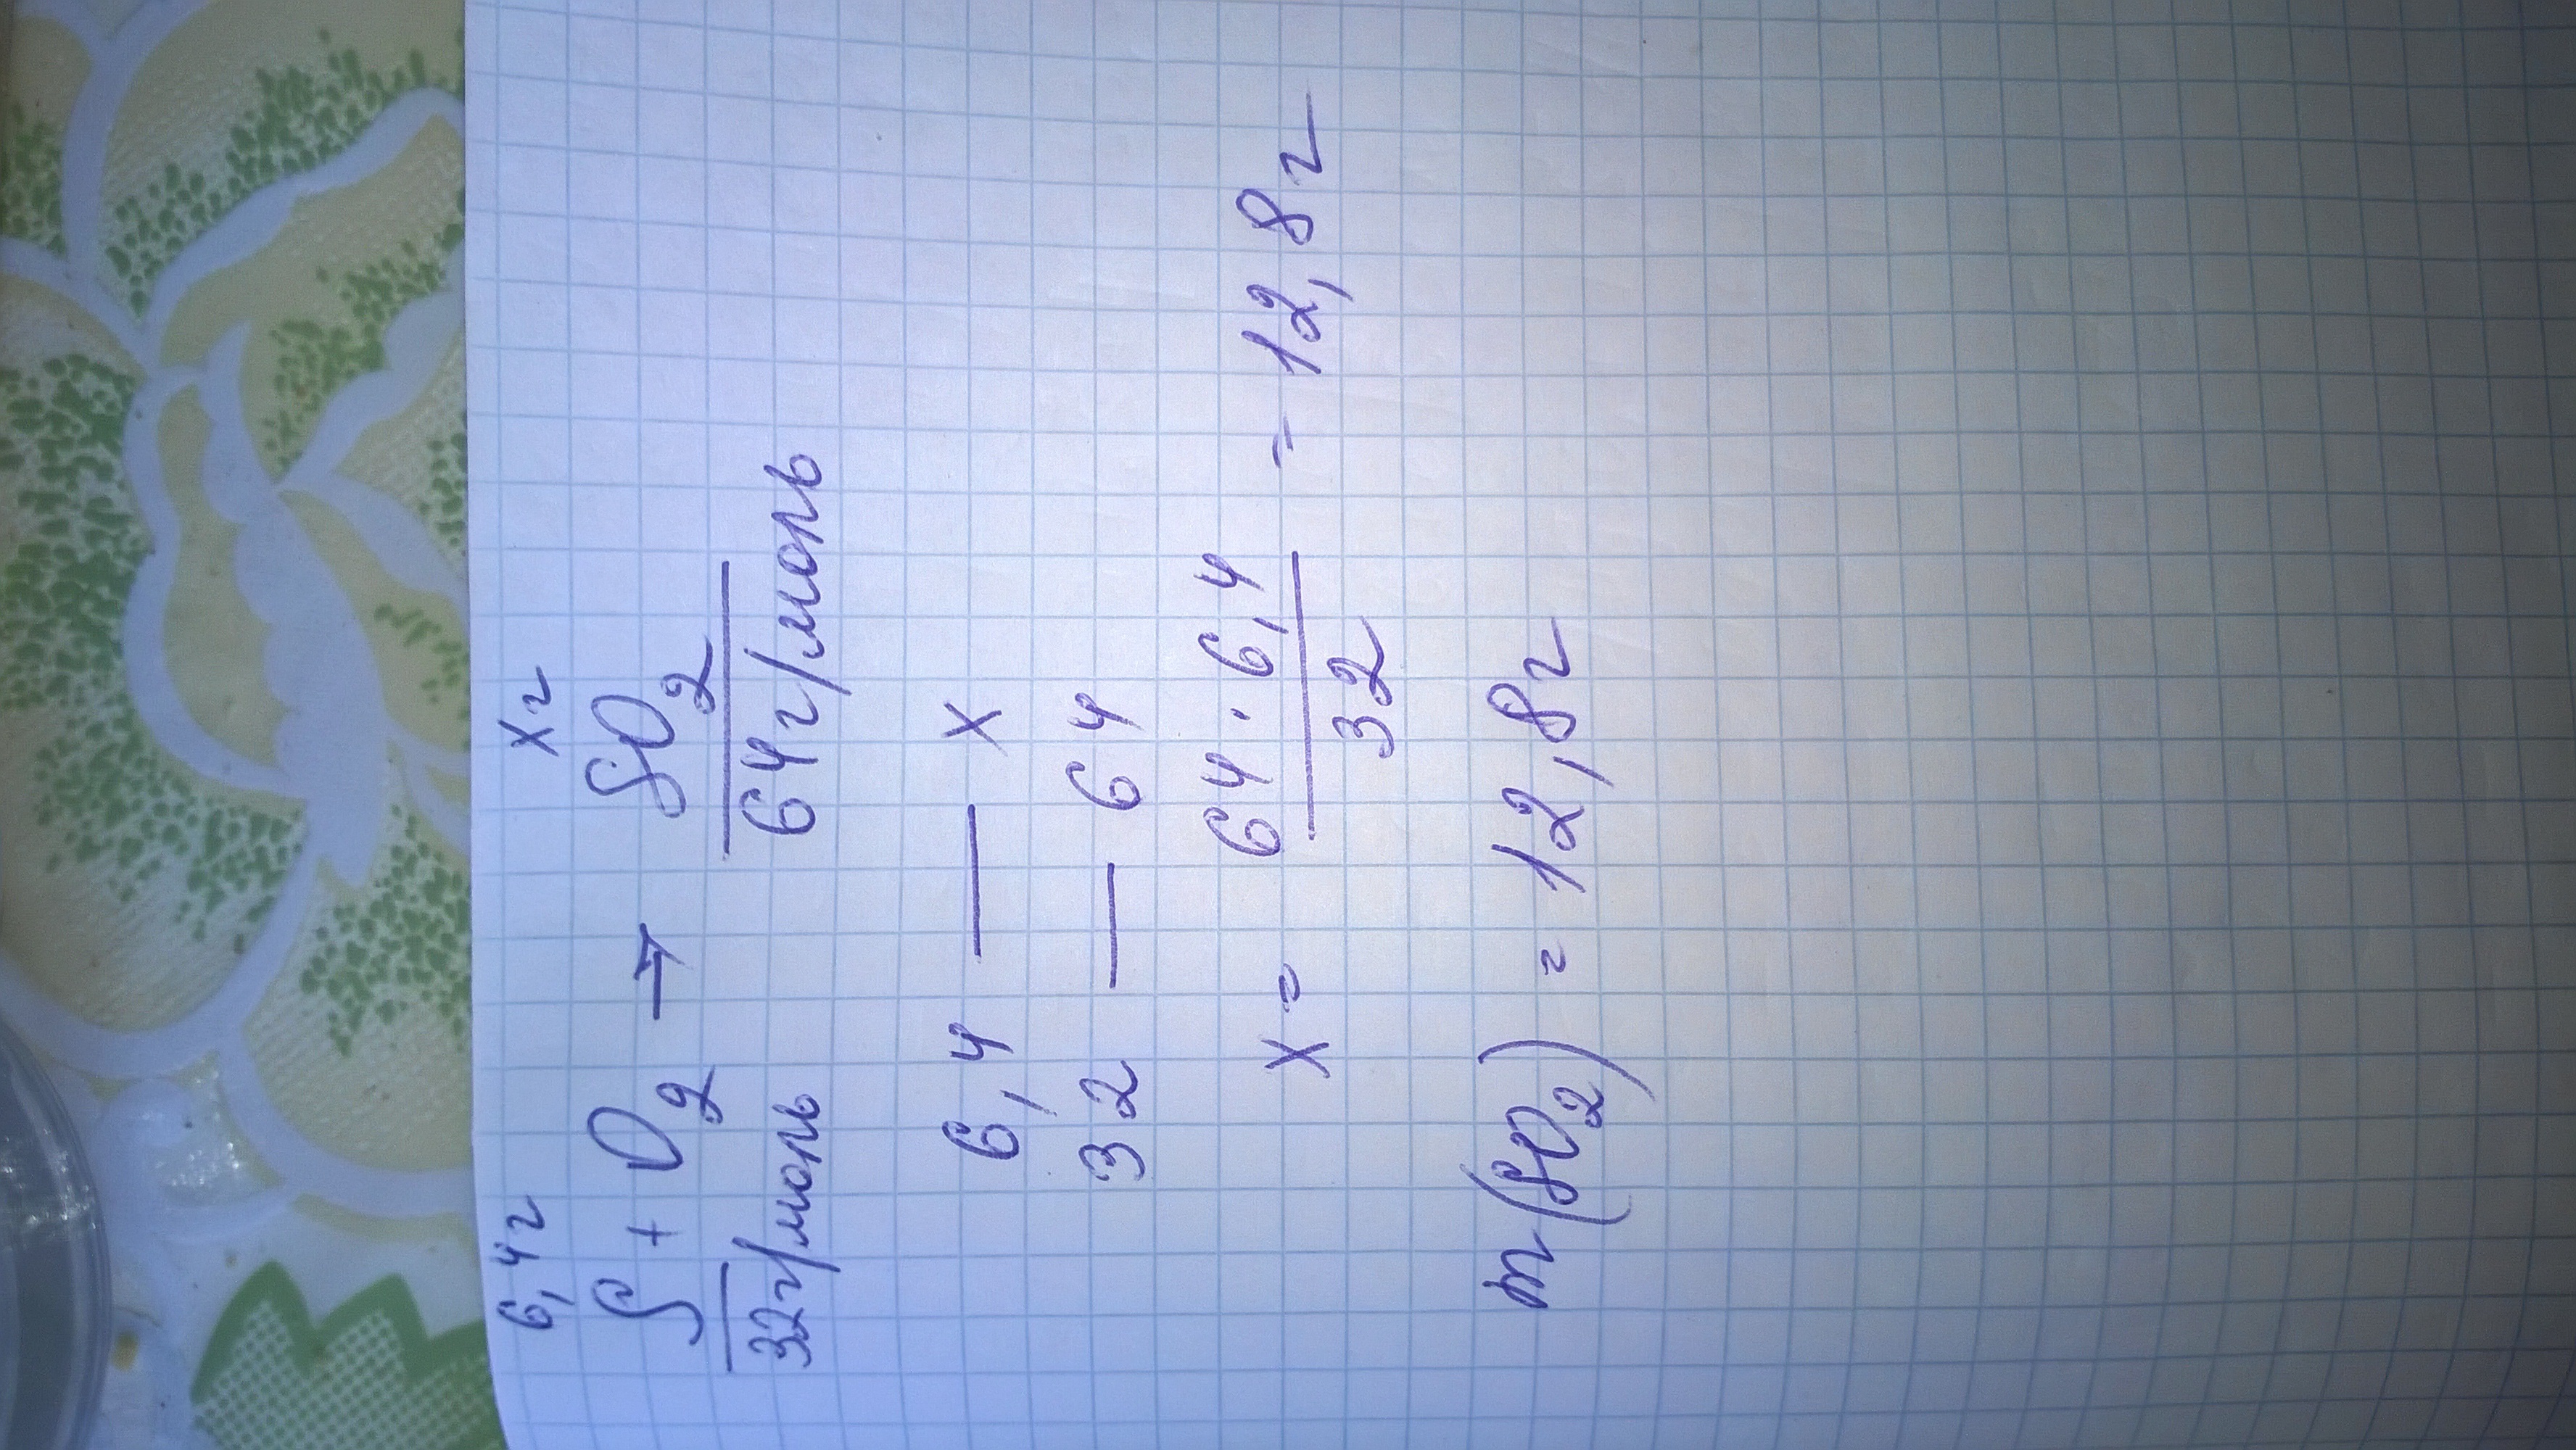 6,4г xг
S + O2 → SO2
32г/моль 64г/моль
6,4 — x
32 — 64
x = 64 · 6,4 / 32 = 12,8г
m(SO2) = 12,8г